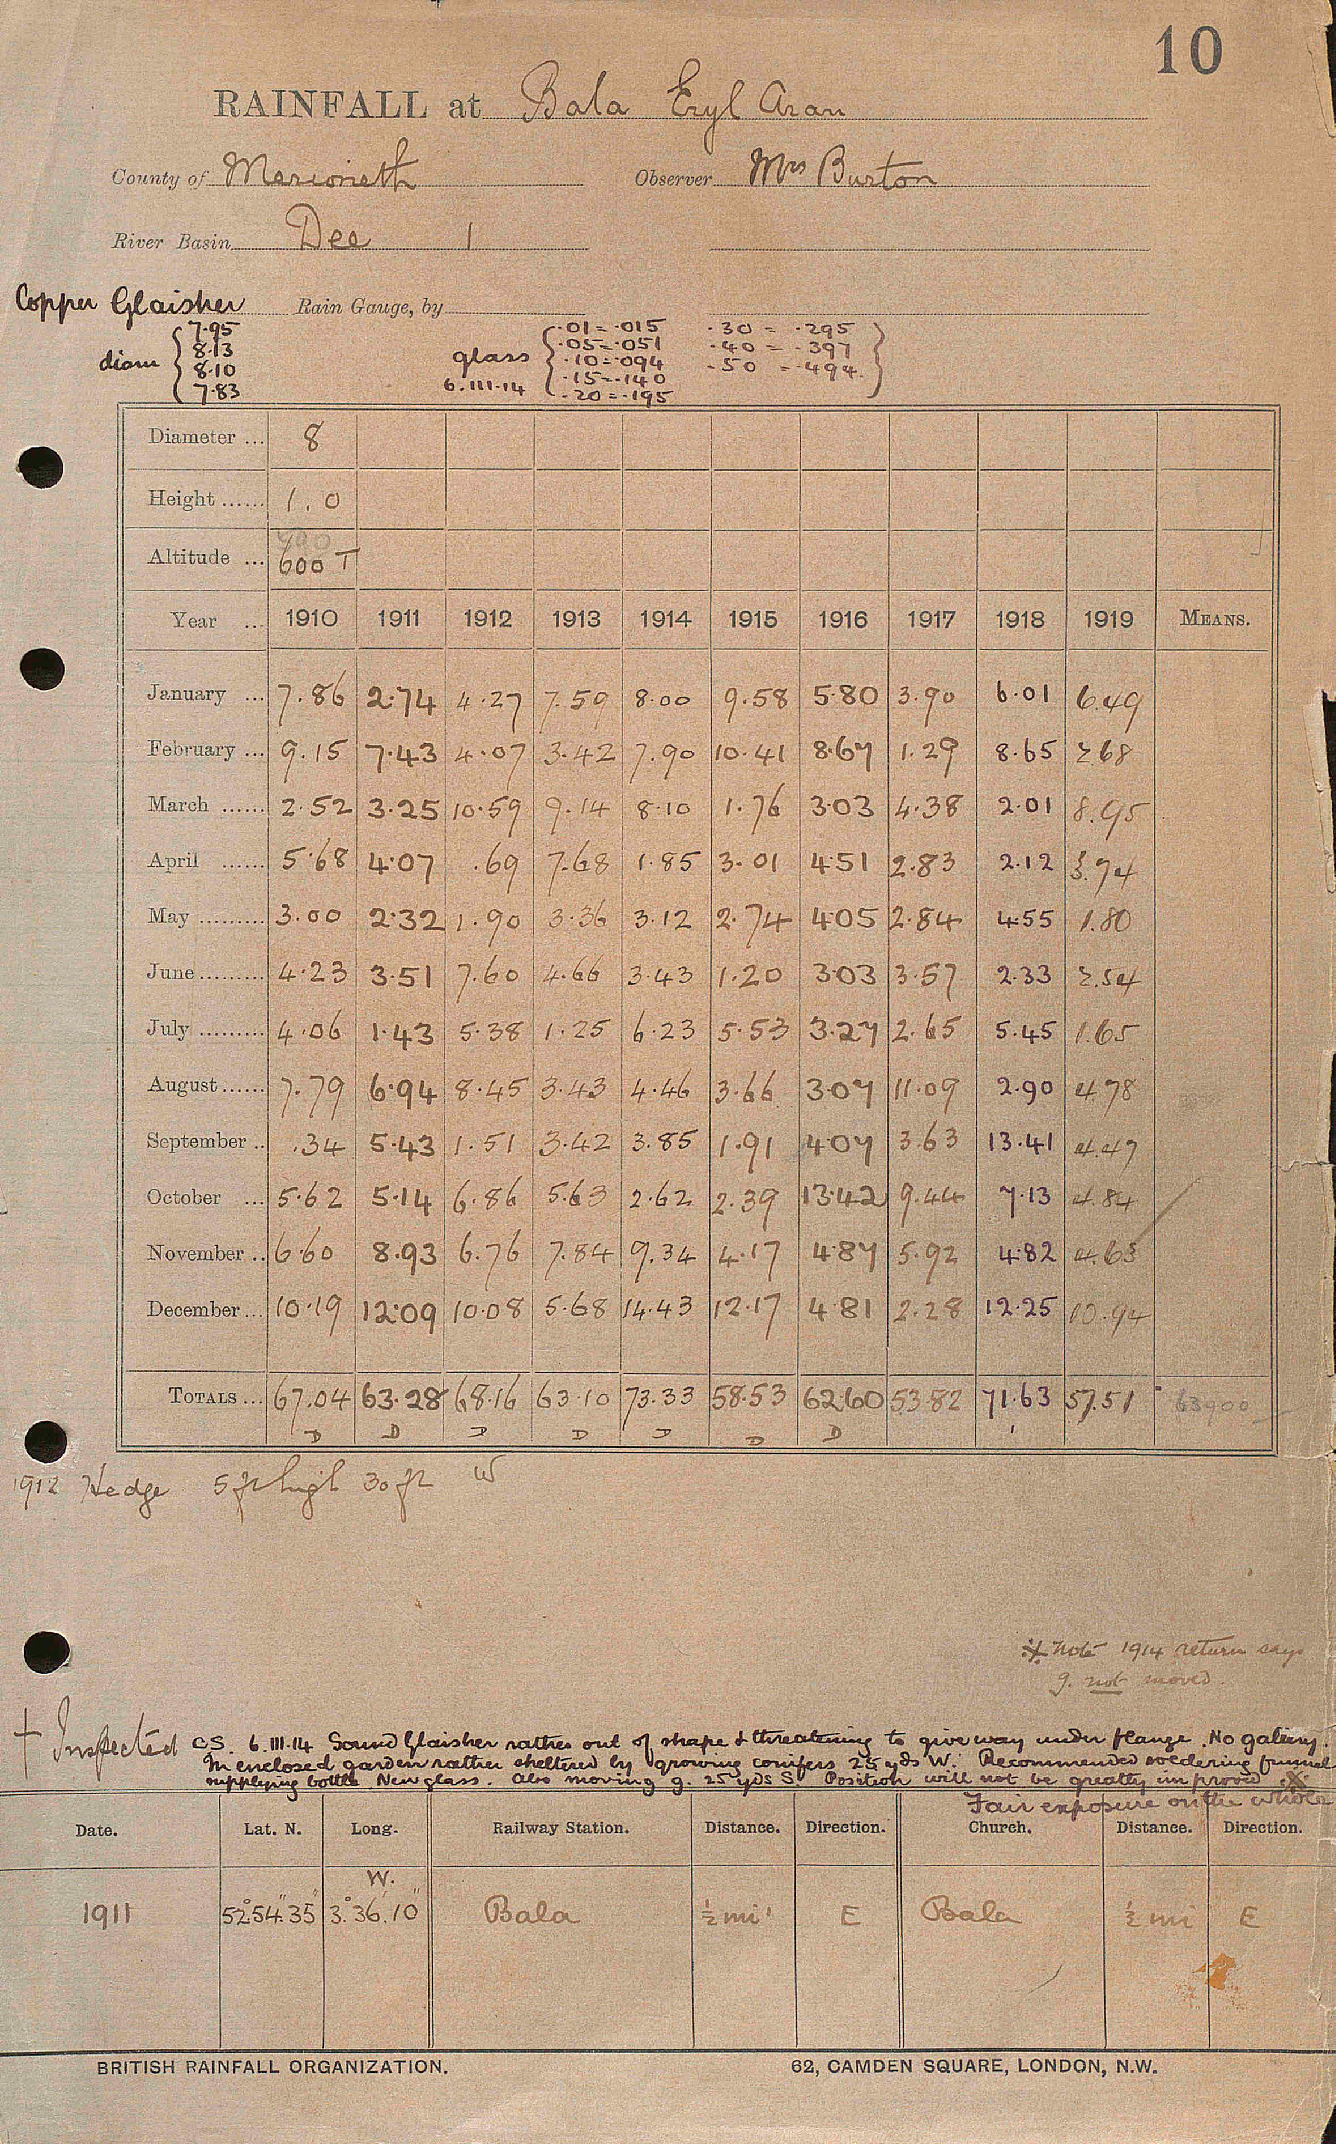 10
RAINFALL at Bala Eryl Aran
County of Merioneth Observer Mrs Burton
River Basin Dee 1
Copper Glaisher Rain Gauge, by
diam { 7.95 8.13 8.10 7.83
glass 6.III.14 { .01 = .015 .30 = .295
.05 = .051 .40 = .397
.10 = .094 .50 = .494 }
.15 = .140
.20 = .195
Diameter ... 8
Height ...... 1.0
Altitude ... 490 600 T
Year ... 1910 1911 1912 1913 1914 1915 1916 1917 1918 1919 MEANS.
January ... 7.86 2.74 4.27 7.59 8.00 9.58 5.80 3.90 6.01 6.49
February ... 9.15 7.43 4.07 3.42 7.90 10.41 8.67 1.29 8.65 2.68
March ...... 2.52 3.25 10.59 9.14 8.10 1.76 3.03 4.38 2.01 8.95
April ...... 5.68 4.07 .69 7.68 1.85 3.01 4.51 2.83 2.12 3.74
May ......... 3.00 2.32 1.90 3.36 3.12 2.74 4.05 2.84 4.55 1.80
June ......... 4.23 3.51 7.60 4.66 3.43 1.20 3.03 3.57 2.33 2.54
July ......... 4.06 1.43 5.38 1.25 6.23 5.53 3.27 2.65 5.45 1.65
August ...... 7.79 6.94 8.45 3.43 4.46 3.66 3.07 11.09 2.90 4.78
September .. .34 5.43 1.51 3.42 3.85 1.91 4.07 3.63 13.41 4.47
October ... 5.62 5.14 6.86 5.63 2.62 2.39 13.42 9.44 7.13 4.84
November .. 6.60 8.93 6.76 7.84 9.34 4.17 4.87 5.92 4.82 4.63
December ... 10.19 12.09 10.08 5.68 14.43 12.17 4.81 2.28 12.25 10.94
TOTALS ... 67.04 63.28 68.16 63.10 73.33 58.53 62.60 53.82 71.63 57.51 63900
D D D D D D D
1912 Hedge 5 ft high 30 ft W
※ Note 1914 return says
g. not moved.
† Inspected CS. 6.III.14 Sound Glaisher rather out of shape & threatening to give way under flange. No galleng.
In enclosed garden rather sheltered by growing conifers 25 yds W. Recommended soldering funnel
supplying bottle New glass. Also moving g. 25 yds S. Position will not be greatly improved. ※
Fair exposure on the whole
Date. Lat. N. Long. Railway Station. Distance. Direction. Church. Distance. Direction.
W.
1911 52° 54' 35" 3° 36' 10" Bala ½ mi E Bala ½ mi E
BRITISH RAINFALL ORGANIZATION. 62, CAMDEN SQUARE, LONDON, N.W.